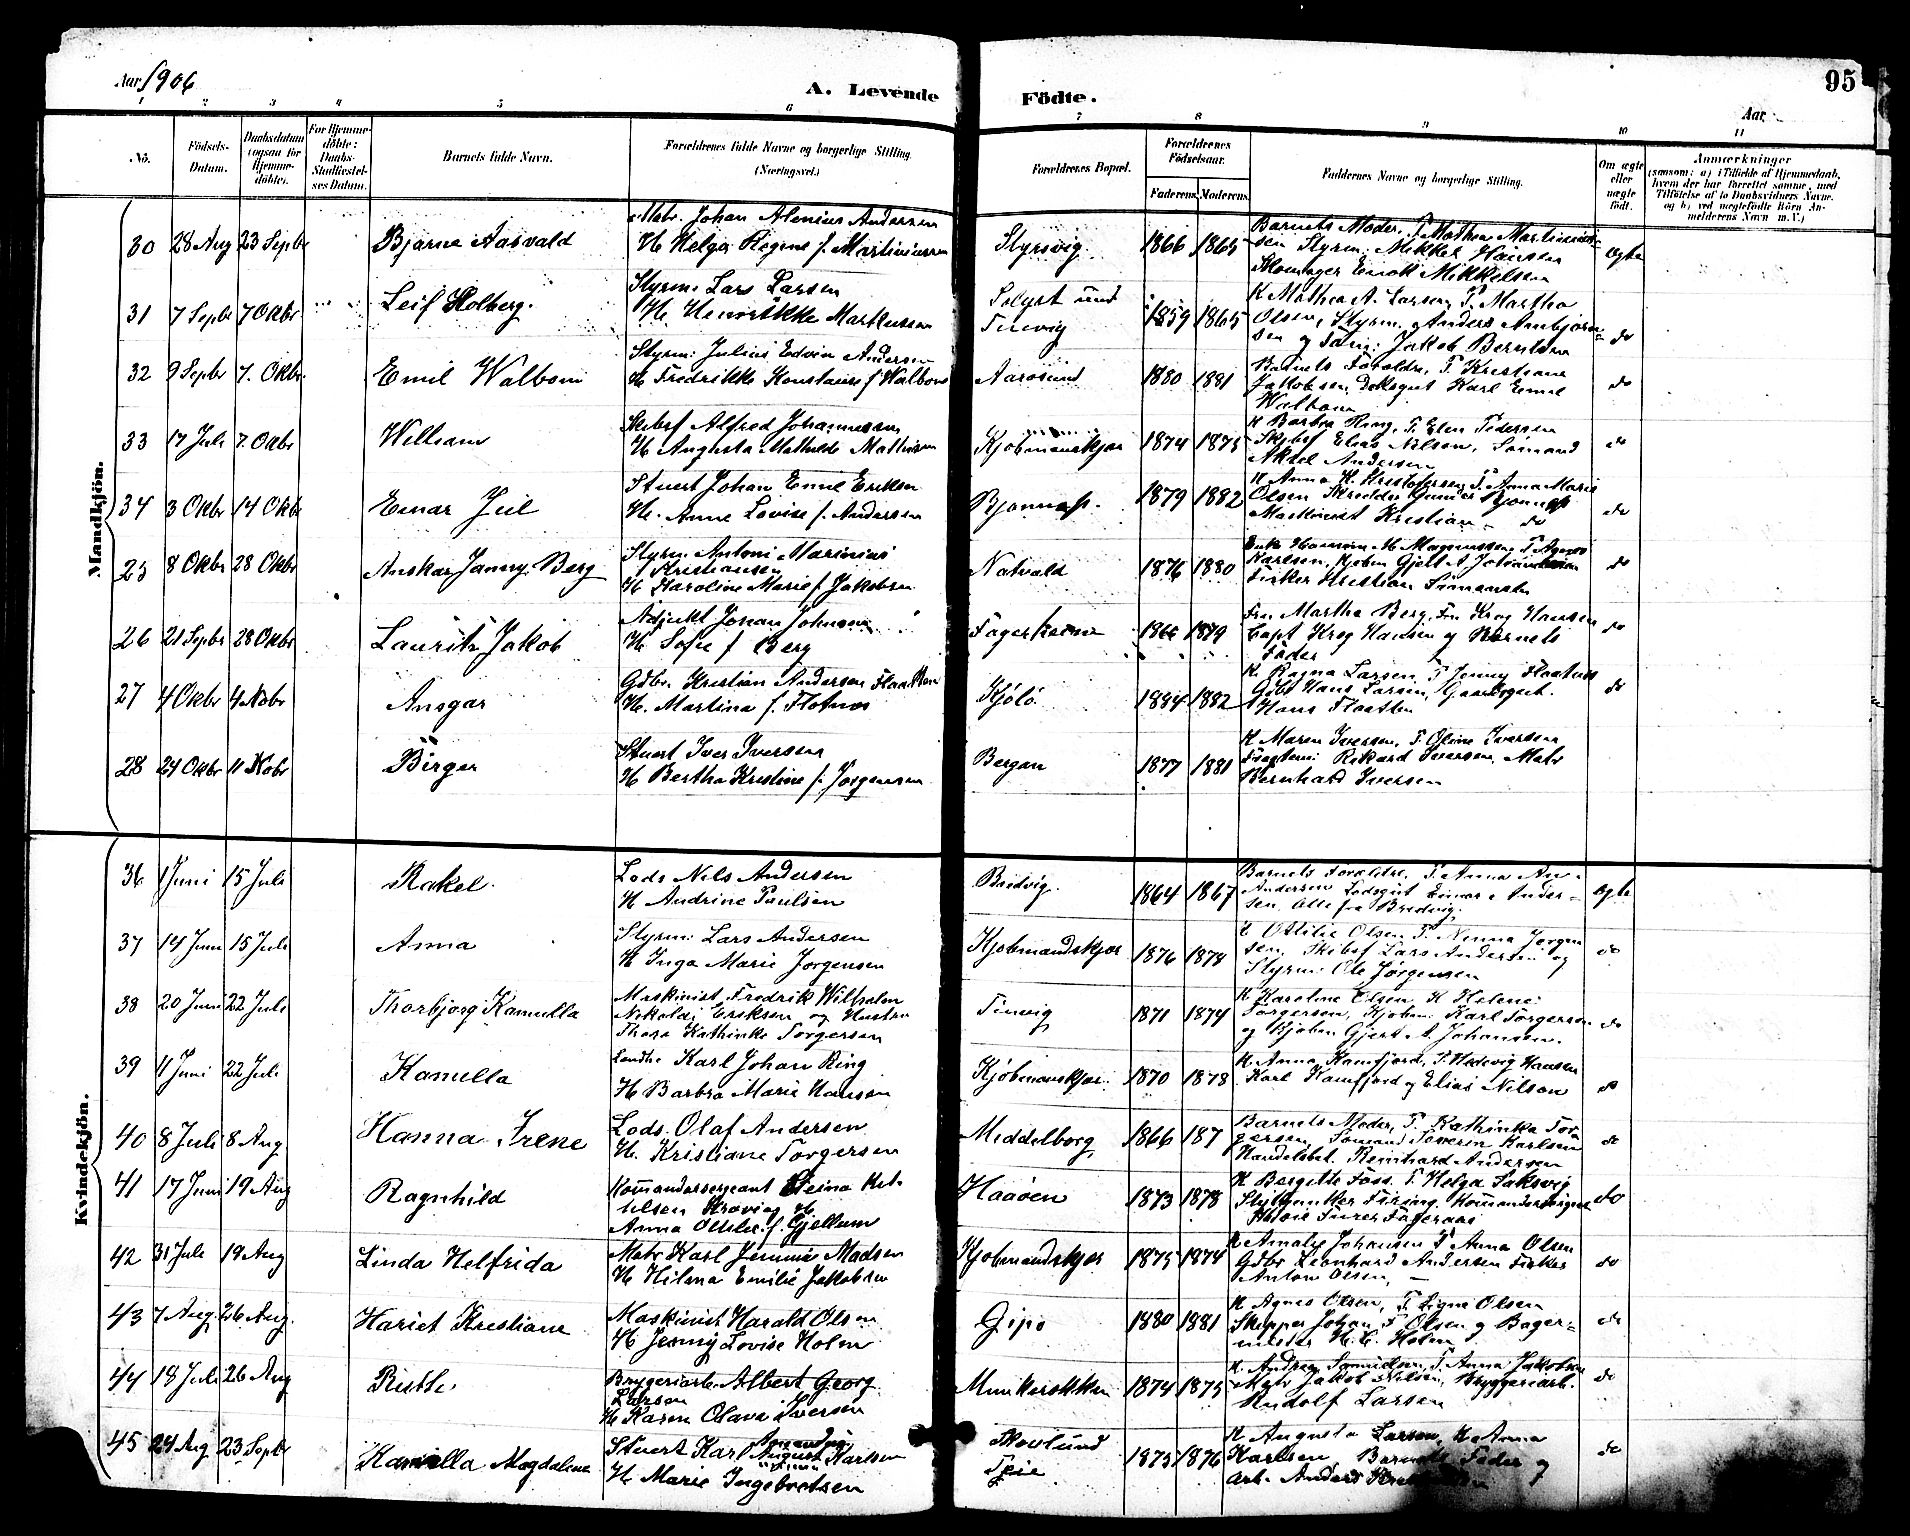 Aar 1906
A. Levende Födte.
95
Aar
1 2 3 4 5 6 7 8 9 10 11
No. Födsels-Datum. Daabsdatum (ogsaa for Hjemme-döbte). For Hjemme-döbte: Daabs-Stadfæstel-ses Datum. Barnets fulde Navn. Forældrenes fulde Navne og borgerlige Stilling. (Næringsvei.) Forældrenes Bopæl. Forældrenes Födselsaar. Faderens. Moderens. Faddernes Navne og borgerlige Stilling. Om ægte eller uægte födt. Anmærkninger
(saasom: a) i Tilfælde af Hjemmedaab,
hvem der har forrettet samme, med
Tilföielse af to Daabsvidners Navne.
og b) ved uægtefödte Börn An-
melderens Navn m. V.)
Mandkjön.
30 28 Aug 23 Septbr Bjarne Aasvald Matr. Johan Alenius Andersen
H Helga Regine f. Martiniussen Styrsvig 1866 1865 Barnets Moder, P. Mathea Martinius-
sen Styrm. Mikkel Hansen
Skomager Enok Mikkelsen ægte
31 7 Septbr 7 Oktbr Leif Holberg. Styrm. Lars Larsen
H. Henrikke Markussen Solyst und
Tenvig 1859 1865 K Mathea A. Larsen, P. Martha
Olsen, Styrm. Anders Anbjørn-
sen og Søm: Jakob Berntsen do
32 9 Septbr 7. Oktbr. Emil Walbom Styrm: Julius Edvin Andersen
H Fredrikke Konstanse f Walbom Aarøsund 1880 1881 Barnets Forældre, P. Kristiane
Jakobsen, Dæksgut Karl Emil
Walbom do
33 17 Juli 7. Oktbr William Skibsf Alfred Johannessen
H Augusta Mathilde Mathisen Kjøbmanskjær 1874 1875 K Barbra Ring, P. Elen Pedersen
Skibsf Elias Nilsen, Sømand
Aksel Andersen do
34 3 Oktbr 14 Oktbr Einar Juel Stuert Johan Emil Eriksen
H. Anne Lovise f. Andersen Bjønnes. 1879 1882 K Anna K. Kristofersen, P. Anna Marie
Olsen Skredder Gunner Bjønnes
Maskinist Kristian do do
25 8 Oktbr 28 Oktbr Anskar Janny Berg Styrm. Antoni Marinius
Kristiansen
H Karoline Marie f. Jakobsen Natvald 1876 1880 Enke M Magnussen P. Agnes
Karlsen, Kjøbm Gjert A Johannsen
Fisker Kristian Simonsen do
26 21 Septbr 28 Oktbr Laurits Jakob Adjukt Johan Johnsen
H. Sofie f Berg Fagerheim 1866 1879 Fru Martha Berg, Fru Krog Hansen
Capt Krog Hansen og Barnets
Fader do
27 4 Oktbr 4 Nobr Ansgar Gdbr. Kristian Andersen Flaatten
H. Martina f. Flotnes Kjølø 1884 1882 K. Ragna Larsen, P. Jenny Flaatnes
Gdbr Hans Larsen, Gaardsgut.
Hans Flaatten do
28 24 Oktbr 11 Nobr Birger Stuert Iver Iversen
H Bertha Kristine f. Jørgensen Bergan 1877 1881 K Maren Iversen, P. Oline Iversen
Rikard Iversen, Matr
Bernhard Iversen
Kvindekjön.
36 1 Juni 15 Juli Rakel. Lods Nils Andersen
H Andrine Paulsen Bredvig. 1864 1867 Barnets Forældre, P. Anna An-
Andersen Lodsgut Einar Ander-
sen Alle fra Bredvig. ægte
37 14 Juni 15 Juli Anna Styrm: Lars Andersen
H Inga Marie Jørgensen Kjøbmandskjær 1876 1878 K Ottilie Olsen P. Ninna Jørgen
sen, Skibsf Lars Andersen og
Styrm: Ole Jørgensen do
38 20 Juni 22 Juli Thorbjørg Kamilla Maskinist Fredrik Wilhelm
Nikolai Eriksen og Hustru
Thora Kathinka Torgersen Tenvig 1871 1874 K Karoline Olsen, K Helene
Torgersen, Kjøbm: Karl Torgersen
og Kjøbm Gjert A Johansen. do
39 11 Juni 22 Juli Kamilla Landhr Karl Johan Ring
H Barbra Marie Hansen Kjøbmanskjær. 1870 1878 K. Anna Kamfjord, P. Hedevig Hansen
Karl Kamfjord og Elias Nilsen do
40 8 Juli 8 Aug. Hanna Irene Lods. Olaf Andersen
H. Kristiane Torgersen Middelborg 1866 187 Barnets Moder, P. Kathinka Tor
gersen, Sømand Severin Karlsen
Handelsbet. Reinhard Andersen do
41 17 Juni 19 Aug Ragnhild Kommandersergeant
Anna Otilie f. Gjellum Haaøen 1873 1878 K Bergitte Foss. P. Helga Saksvig
do
42 31 Juli 19 Aug Linda Helfrida Matr Karl Jemmis Madsen
H Hilma Emilie Jakobsen Kjøbmandskjær 1875 1874 K Amalie Johansen P Anna Olsen
Gdbr Leonhard Andersen Fisker
Anton Olsen, do
43 7 Aug. 26 Aug. Hariet Kristiane Maskinist Harald Olsen
H Jenny Lovise Holm Gipø 1880 1881 K Agnes Olsen, P. Signe Olsen
Skipper Johan F Olsen og Bager-
mester H. C. Holm do
44 18 Juli 26 Aug Ruth. Bryggeriarb. Albert Georg
Larsen
H Karen Olava Iversen Munkerekken 1874 1875 K. Andrea Samuelsen, P. Anna Jakobsen
Matr Jakob Nilsen, Bryggeriarb.
Rudolf Larsen do
45 24 Aug 23 Septbr Kamilla Magdalene Stuert Karl August Karlsen
H Marie Ingebretsen Skovlund
Teie 1875 1876 K Augusta Larsen, K Anna
Karlsen Barnets Fader og
Arb. Anders do